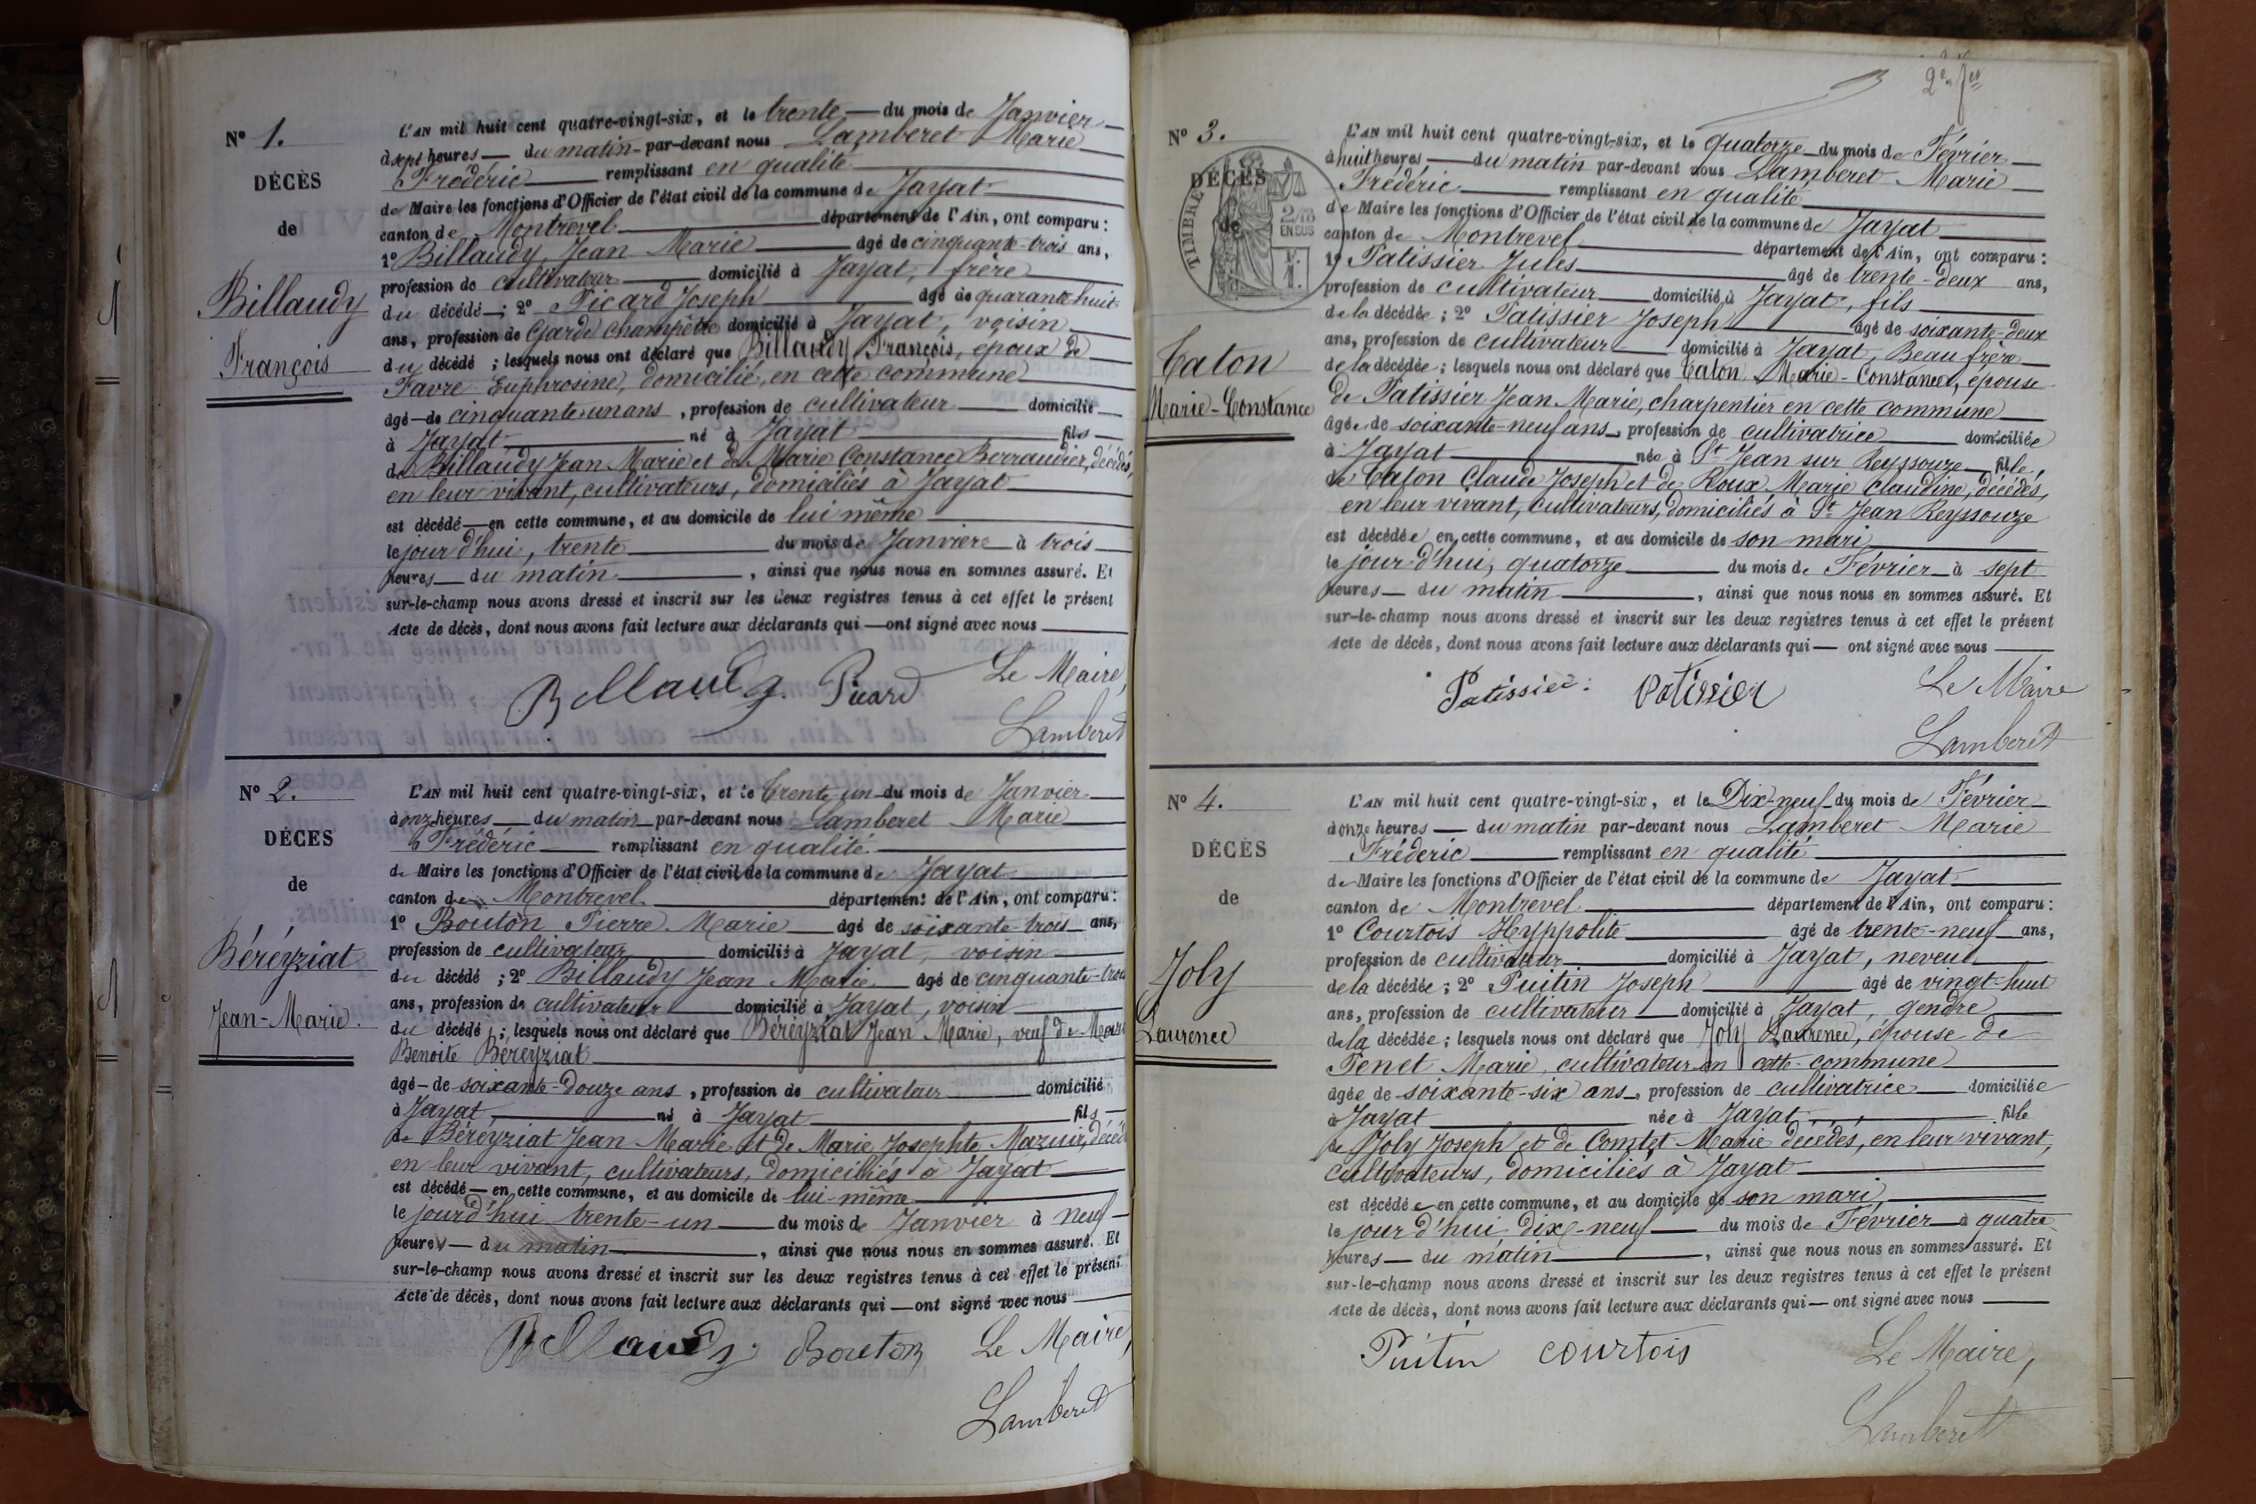 N° 1.
DÉCÈS
de
Billaudy
François
L'AN mil huit cent quatre-vingt-six, et le trente du mois de Janvier
à sept heures du matin par-devant nous Lamberet Marie
Frédéric remplissant en qualité
de Maire les fonctions d'Officier de l'état civil de la commune de Jayat
canton de Montrevel département de l'Ain, ont comparu :
1° Billaudy, Jean Marie âgé de cinquante-trois ans,
profession de cultivateur domicilié à Jayat, frère
du décédé ; 2° Picard Joseph âgé de quarante huit
ans, profession de Garde champêtre domicilié à Jayat, voisin
du décédé ; lesquels nous ont déclaré que Billaudy François, époux de
Favre Euphrosine, domicilié en cette commune
âgé de cinquante-un ans, profession de cultivateur domicilié
à Jayat né à Jayat fils
de Billaudy Jean Marie et de Marie Constance Berraudier, décédés,
en leur vivant, cultivateurs, domiciliés à Jayat
est décédé en cette commune, et au domicile de lui même
le jour d'hui, trente du mois de Janvier à trois
heures du matin, ainsi que nous nous en sommes assuré. Et
sur-le-champ nous avons dressé et inscrit sur les deux registres tenus à cet effet le présent
Acte de décès, dont nous avons fait lecture aux déclarants qui ont signé avec nous
Billaudy Picard Le Maire,
Lamberet
N° 2.
DÉCES
de
Béréyziat
Jean-Marie.
L'AN mil huit cent quatre-vingt-six, et le trente un du mois de Janvier
à onz heures du matin par-devant nous Lamberet Marie
Frédéric remplissant en qualité
de Maire les fonctions d'Officier de l'état civil de la commune de Jayat
canton de Montrevel département de l'Ain, ont comparu :
1° Bouton Pierre Marie âgé de soixante trois ans,
profession de cultivateur domicilié à Jayat, voisin
du décédé ; 2° Billaudy Jean Marie âgé de cinquante-trois
ans, profession de cultivateur domicilié à Jayat, voisin
du décédé ; lesquels nous ont déclaré que Béréyziat Jean Marie, veuf de
Benoite Béreyziat
âgé de soixante-douze ans, profession de cultivateur domicilié
à Jayat né à Jayat fils
de Béréyziat Jean Marie et de Marie Josephte Mazuir, décéd
en leur vivant, cultivateurs, domiciliés à Jayat
est décédé en cette commune, et au domicile de lui-même
le jourd'hui trente-un du mois de Janvier à neuf
heures du matin, ainsi que nous nous en sommes assuré. Et
sur-le-champ nous avons dressé et inscrit sur les deux registres tenus à cet effet le présent
Acte de décès, dont nous avons fait lecture aux déclarants qui ont signé avec nous
Billaudy Bouton Le Maire,
Lamberet
N° 3.
DÉCÈS
de
TIMBRE
2/10
EN SUS
Caton
Marie-Constance
L'AN mil huit cent quatre-vingt-six, et le quatorze du mois de Février
à huit heures du matin par-devant nous Lamberet Marie
Frédéric remplissant en qualité
de Maire les fonctions d'Officier de l'état civil de la commune de Jayat
canton de Montrevel département de l'Ain, ont comparu :
1° Patissier Jules âgé de trente-deux ans,
profession de cultivateur domicilié à Jayat, fils
de la décédée ; 2° Patissier Joseph âgé de soixante-deux
ans, profession de cultivateur domicilié à Jayat, Beau frère
de la décédée ; lesquels nous ont déclaré que Caton Marie-Constance, épouse
de Patissier Jean Marie, charpentier en cette commune
âgée de soixante-neuf ans, profession de cultivatrice domiciliée
à Jayat née à St Jean sur Reyssouze fille,
de Caton Claude Joseph et de Roux Marie Claudine, décédés,
en leur vivant, cultivateurs, domiciliés à St Jean Reyssouze
est décédée en cette commune, et au domicile de son mari
le jour d'hui, quatorze du mois de Février à sept
heures du matin, ainsi que nous nous en sommes assuré. Et
sur-le-champ nous avons dressé et inscrit sur les deux registres tenus à cet effet le présent
Acte de décès, dont nous avons fait lecture aux déclarants qui ont signé avec nous
Patissier Patissier Le Maire
Lamberet
N° 4.
DÉCÈS
de
Joly
Laurence
L'AN mil huit cent quatre-vingt-six, et le Dix-neuf du mois de Février
à onze heures du matin par-devant nous Lamberet Marie
Fréderic remplissant en qualité
de Maire les fonctions d'Officier de l'état civil de la commune de Jayat
canton de Montrevel département de l'Ain, ont comparu :
1° Courtois Hyppolite âgé de trente-neuf ans,
profession de cultivateur domicilié à Jayat, neveu
de la décédée ; 2° Puitin Joseph âgé de vingt-huit
ans, profession de cultivateur domicilié à Jayat, gendre
de la décédée ; lesquels nous ont déclaré que Joly Laurence, épouse de
Penet Marie, cultivateur en cette commune
âgée de soixante-six ans, profession de cultivatrice domiciliée
à Jayat née à Jayat fille
de Joly Joseph et de Comtet Marie décédés, en leur vivant,
cultivateurs, domiciliés à Jayat
est décédée en cette commune, et au domicile de son mari
le jour d'hui dix-neuf du mois de Février à quatre
heures du matin, ainsi que nous nous en sommes assuré. Et
sur-le-champ nous avons dressé et inscrit sur les deux registres tenus à cet effet le présent
Acte de décès, dont nous avons fait lecture aux déclarants qui ont signé avec nous
Puitin courtois Le Maire,
Lamberet